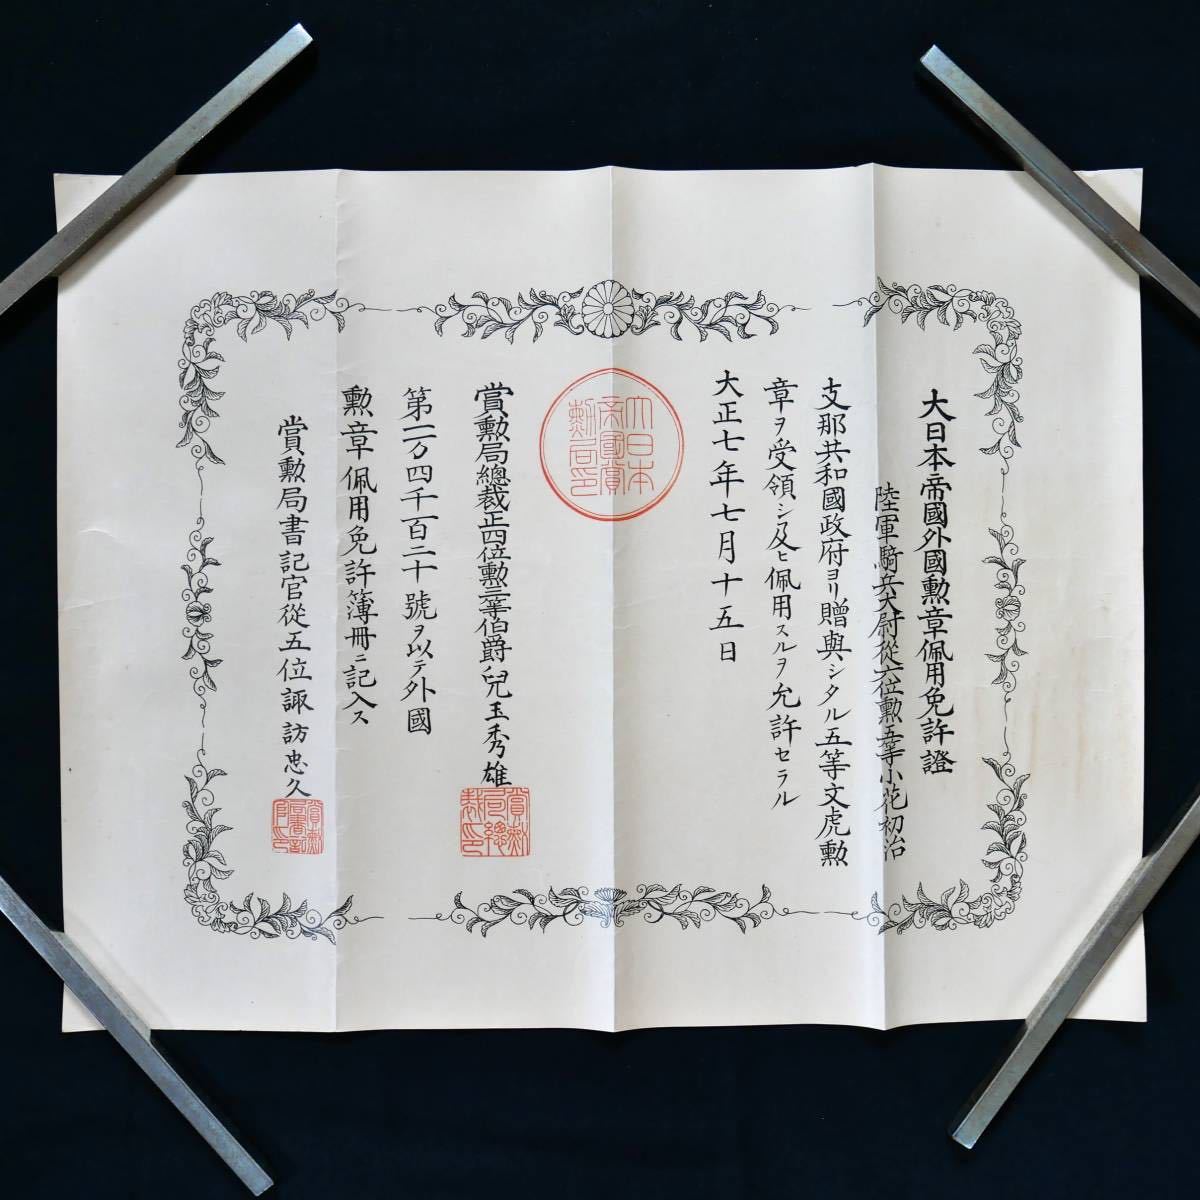 大日本帝國外國勲章佩用免許證
陸軍騎兵大尉從六位勲五等小花初治
支那共和國政府ヨリ贈與シタル五等文虎勲
章ヲ受領シ及ヒ佩用スルヲ允許セラル
大正七年七月十五日
大日本
帝國賞
勲局印
賞勲局總裁正四位勲三等伯爵兒玉秀雄
賞勲
局總
裁印
第二万四千百二十號ヲ以テ外國
勲章佩用免許簿冊ニ記入ス
賞勲局書記官從五位諏訪忠久
賞勲
局書記
官印